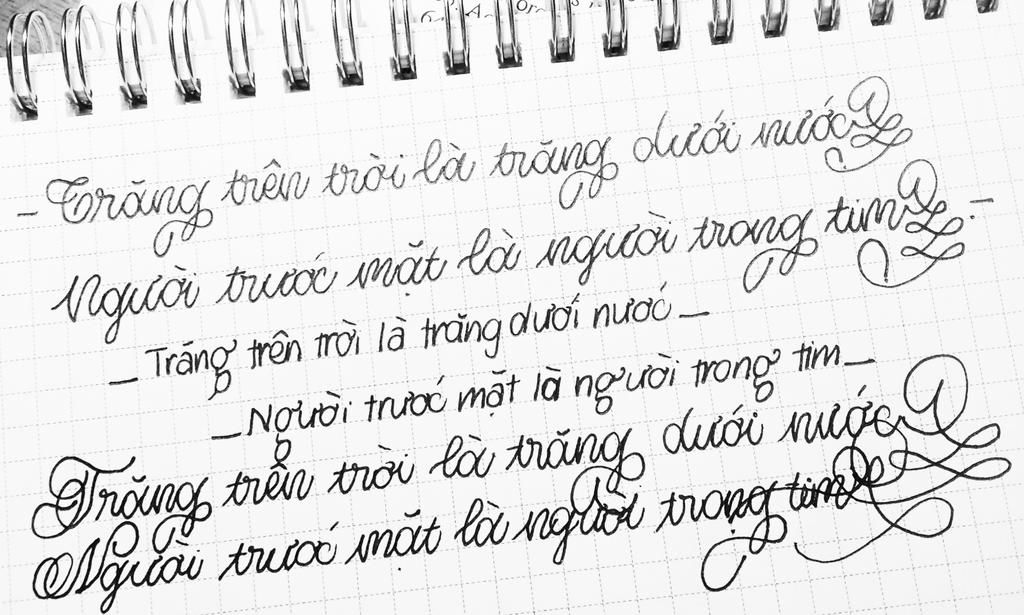 - Trăng trên trời là trăng dưới nước
Người trước mặt là người trong tim.-
- Trăng trên trời là trăng dưới nước -
- Người trước mặt là người trong tim -
Trăng trên trời là trăng dưới nước
Người trước mặt là người trong tim